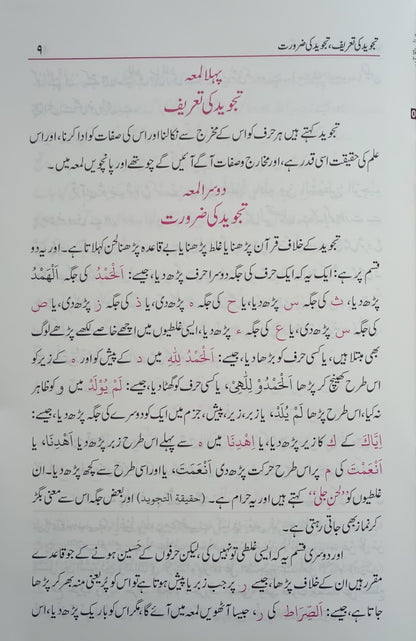 تجوید کی تعریف، تجوید کی ضرورت ۹
پہلا لمعہ
تجوید کی تعریف
تجوید کہتے ہیں ہر حرف کو اس کے مخرج سے نکالنا اور اس کی صفات کو ادا کرنا، اور اس
علم کی حقیقت اسی قدر ہے، اور مخارج و صفات آگے آئیں گے چوتھے اور پانچویں لمعہ میں۔
دوسرا لمعہ
تجوید کی ضرورت
تجوید کے خلاف قرآن پڑھنا یا غلط پڑھنا یا بے قاعدہ پڑھنا لحن کہلاتا ہے۔ اور یہ دو
قسم پر ہے: ایک یہ کہ ایک حرف کی جگہ دوسرا حرف پڑھ دیا، جیسے: اَلْحَمْدُ کی جگہ اَلْهَمْدُ
پڑھ دیا، ث کی جگہ س پڑھ دیا، یا ح کی جگہ ہ پڑھ دی، یا ذ کی جگہ ز پڑھ دی، یا ص
کی جگہ س پڑھ دی، یا ع کی جگہ ء پڑھ دیا، ایسی غلطیوں میں اچھے خاصے لکھے پڑھے لوگ
بھی مبتلا ہیں، یا کسی حرف کو بڑھا دیا، جیسے: اَلْحَمْدُ لِلّٰهِ میں د کے پیش کو اور ہ کے زیر کو
اس طرح کھینچ کر پڑھا اَلْحَمْدُوْ لِلّٰهِیْ، یا کسی حرف کو گھٹا دیا، جیسے: لَمْ يُوْلَدْ میں و کو ظاہر
نہ کیا، اس طرح پڑھا لَمْ يُلَدْ، یا زبر، زیر، پیش، جزم میں ایک کو دوسرے کی جگہ پڑھ دیا، جیسے:
اِيَّاكَ کے ك کا زیر پڑھ دیا، یا اِهْدِنَا میں ہ سے پہلے اس طرح زبر پڑھ دیا اَهْدِنَا، یا
اَنْعَمْتَ کی م پر اس طرح حرکت پڑھ دی اَنْعَمَتَ، یا اور اسی طرح سے کچھ پڑھ دیا۔ ان
غلطیوں کو ”لحنِ جلی“ کہتے ہیں اور یہ حرام ہے۔ (حقيقة التجويد) اور بعض جگہ اس سے معنی بگڑ
کر نماز بھی جاتی رہتی ہے۔
اور دوسری قسم یہ کہ ایسی غلطی تو نہیں کی، لیکن حرفوں کے حَسین ہونے کے جو قاعدے
مقرر ہیں ان کے خلاف پڑھا، جیسے ر پر جب زبر یا پیش ہوتا ہے تو اس کو پُر یعنی منہ بھر کر پڑھا
جاتا ہے، جیسے: اَلصِّرَاطَ کی ر، جیسا آٹھویں لمعہ میں آئے گا، مگر اس کو باریک پڑھ دیا، اس